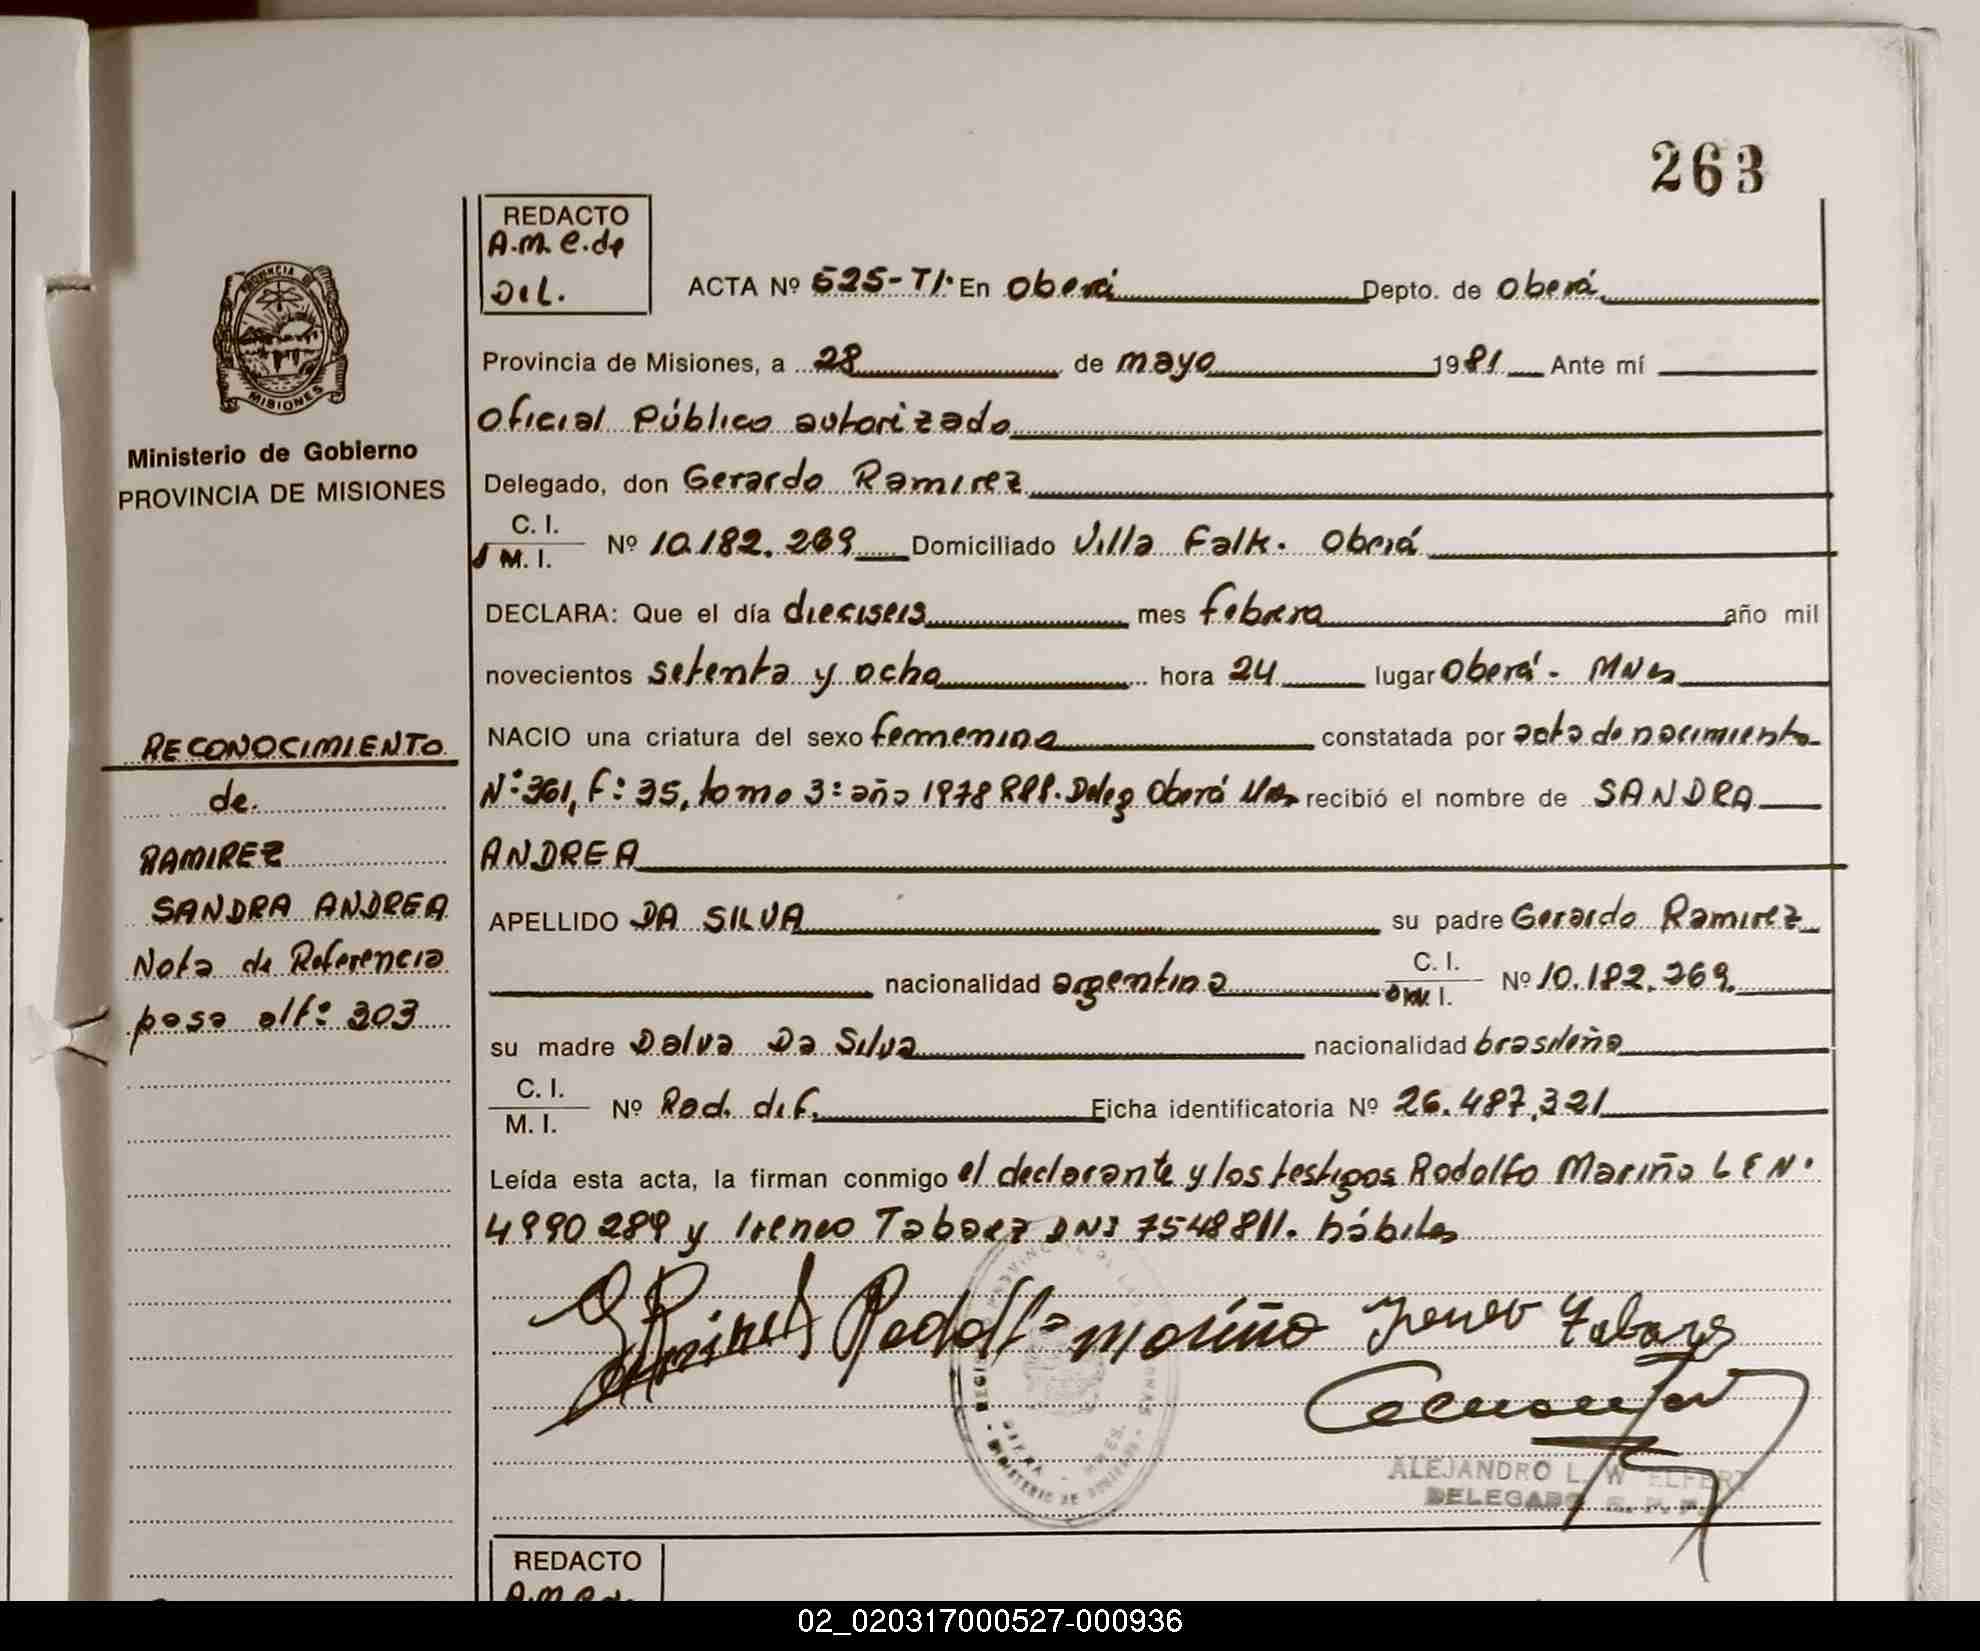 263
REDACTO
A.M.C.de
Dil.
ACTA Nº 525-TI. En Oberá Depto. de Oberá
Provincia de Misiones, a 28 de mayo 1981 Ante mí
Oficial Público autorizado
Delegado, don Gerardo Ramirez
C. I.
M. I.
Nº 10.182.269 Domiciliado Villa Falk. Oberá
DECLARA: Que el día dieciseis mes febrero año mil
novecientos setenta y ocho hora 24 lugar Oberá - Mnes
NACIO una criatura del sexo femenino constatada por acta de nacimiento
Nº 361, fº 35, tomo 3º año 1978 RPP. Deleg Oberá Mnes recibió el nombre de SANDRA
ANDREA
APELLIDO DA SILVA su padre Gerardo Ramirez
nacionalidad argentina C. I. Nº 10.182.269
su madre Dalva Da Silva nacionalidad brasileña
C. I.
M. I.
Nº Rad. dif. Ficha identificatoria Nº 26.487.321
Leída esta acta, la firman conmigo el declarante y los testigos Rodolfo Mariño L E Nº
4990289 y Ireneo Tabarez DNI 7548811. hábiles
Rodolfo Mariño Ireneo Tabarez
ALEJANDRO L. W ELFERT
DELEGADO
PROVINCIA DE MISIONES
Ministerio de Gobierno
PROVINCIA DE MISIONES
RECONOCIMIENTO
de
RAMIREZ
SANDRA ANDREA
Nota de Referencia
pasa al fº 303
REDACTO
A.M.C.de
02_020317000527-000936